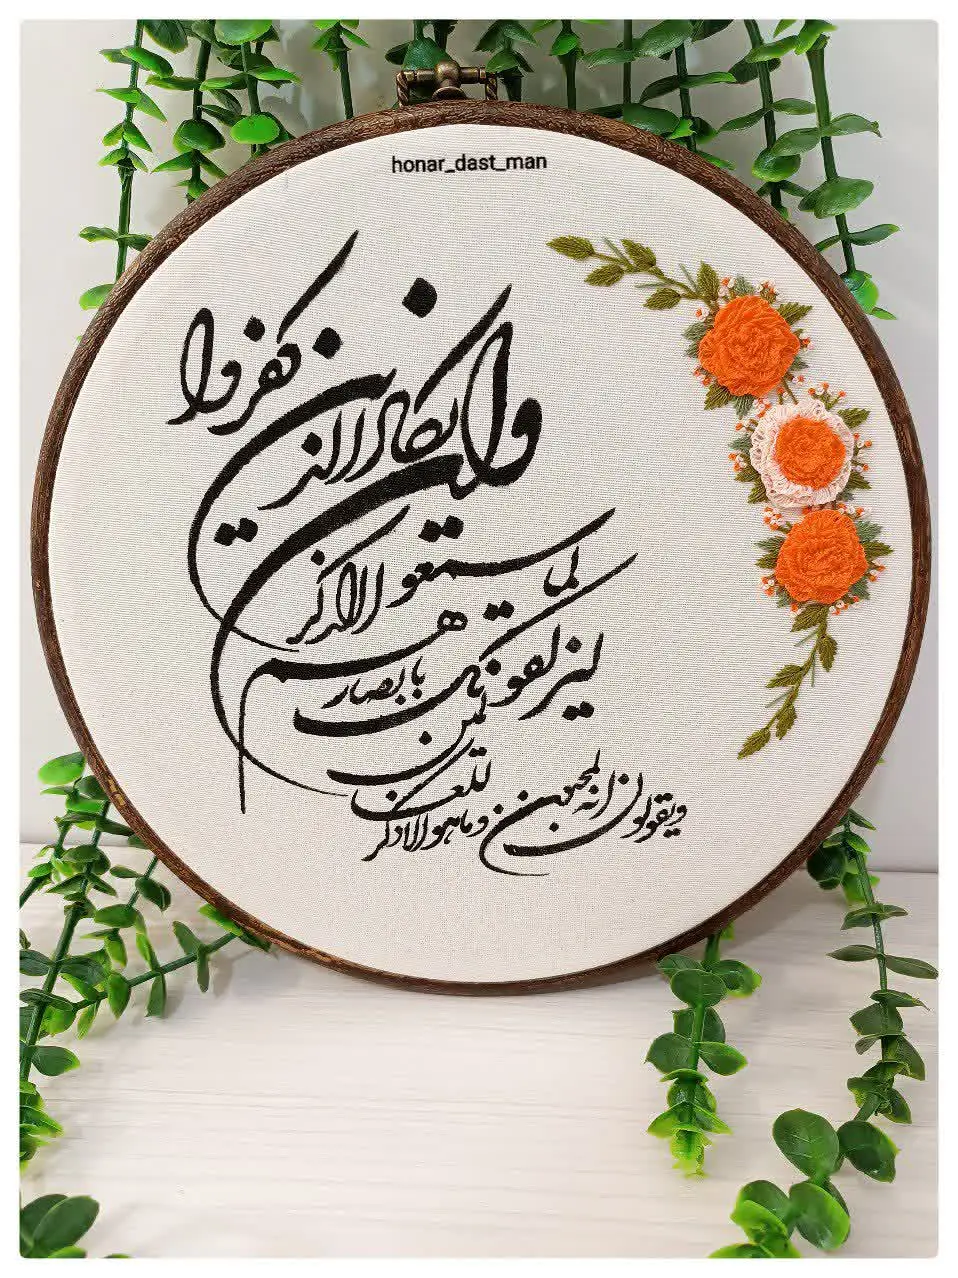 honar_dast_man
وان یکاد الذین کفروا
لیزلقونک بابصارهم
لما سمعوا الذکر
ویقولون انه لمجنون
وما هو الا ذکر
للعالمین